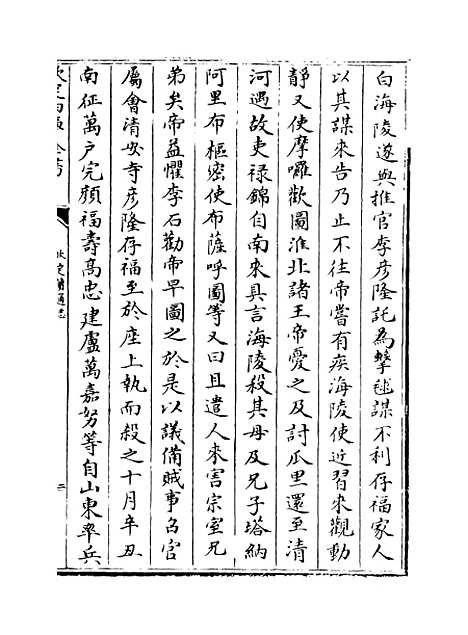 白海陵遂與推官李彦隆託為擊毬謀不利存福家人
以其謀來告乃止不往帝嘗有疾海陵使近習來觀動
静又使摩囉歡圖淮北諸王帝憂之及討瓜里還至清
河遇故吏禄錦自南來具言海陵殺其母及兄子塔納
阿里布樞密使布薩呼圖等又曰且遣人來害宗室兄
弟矣帝益懼李石勸帝早圖之於是以議備賊事召官
屬會清安寺彦隆存福至於座上執而殺之十月辛丑
南征萬户完顔福壽高忠建盧萬嘉努等自山東率兵
欽定四庫全書
欽定續通志
二